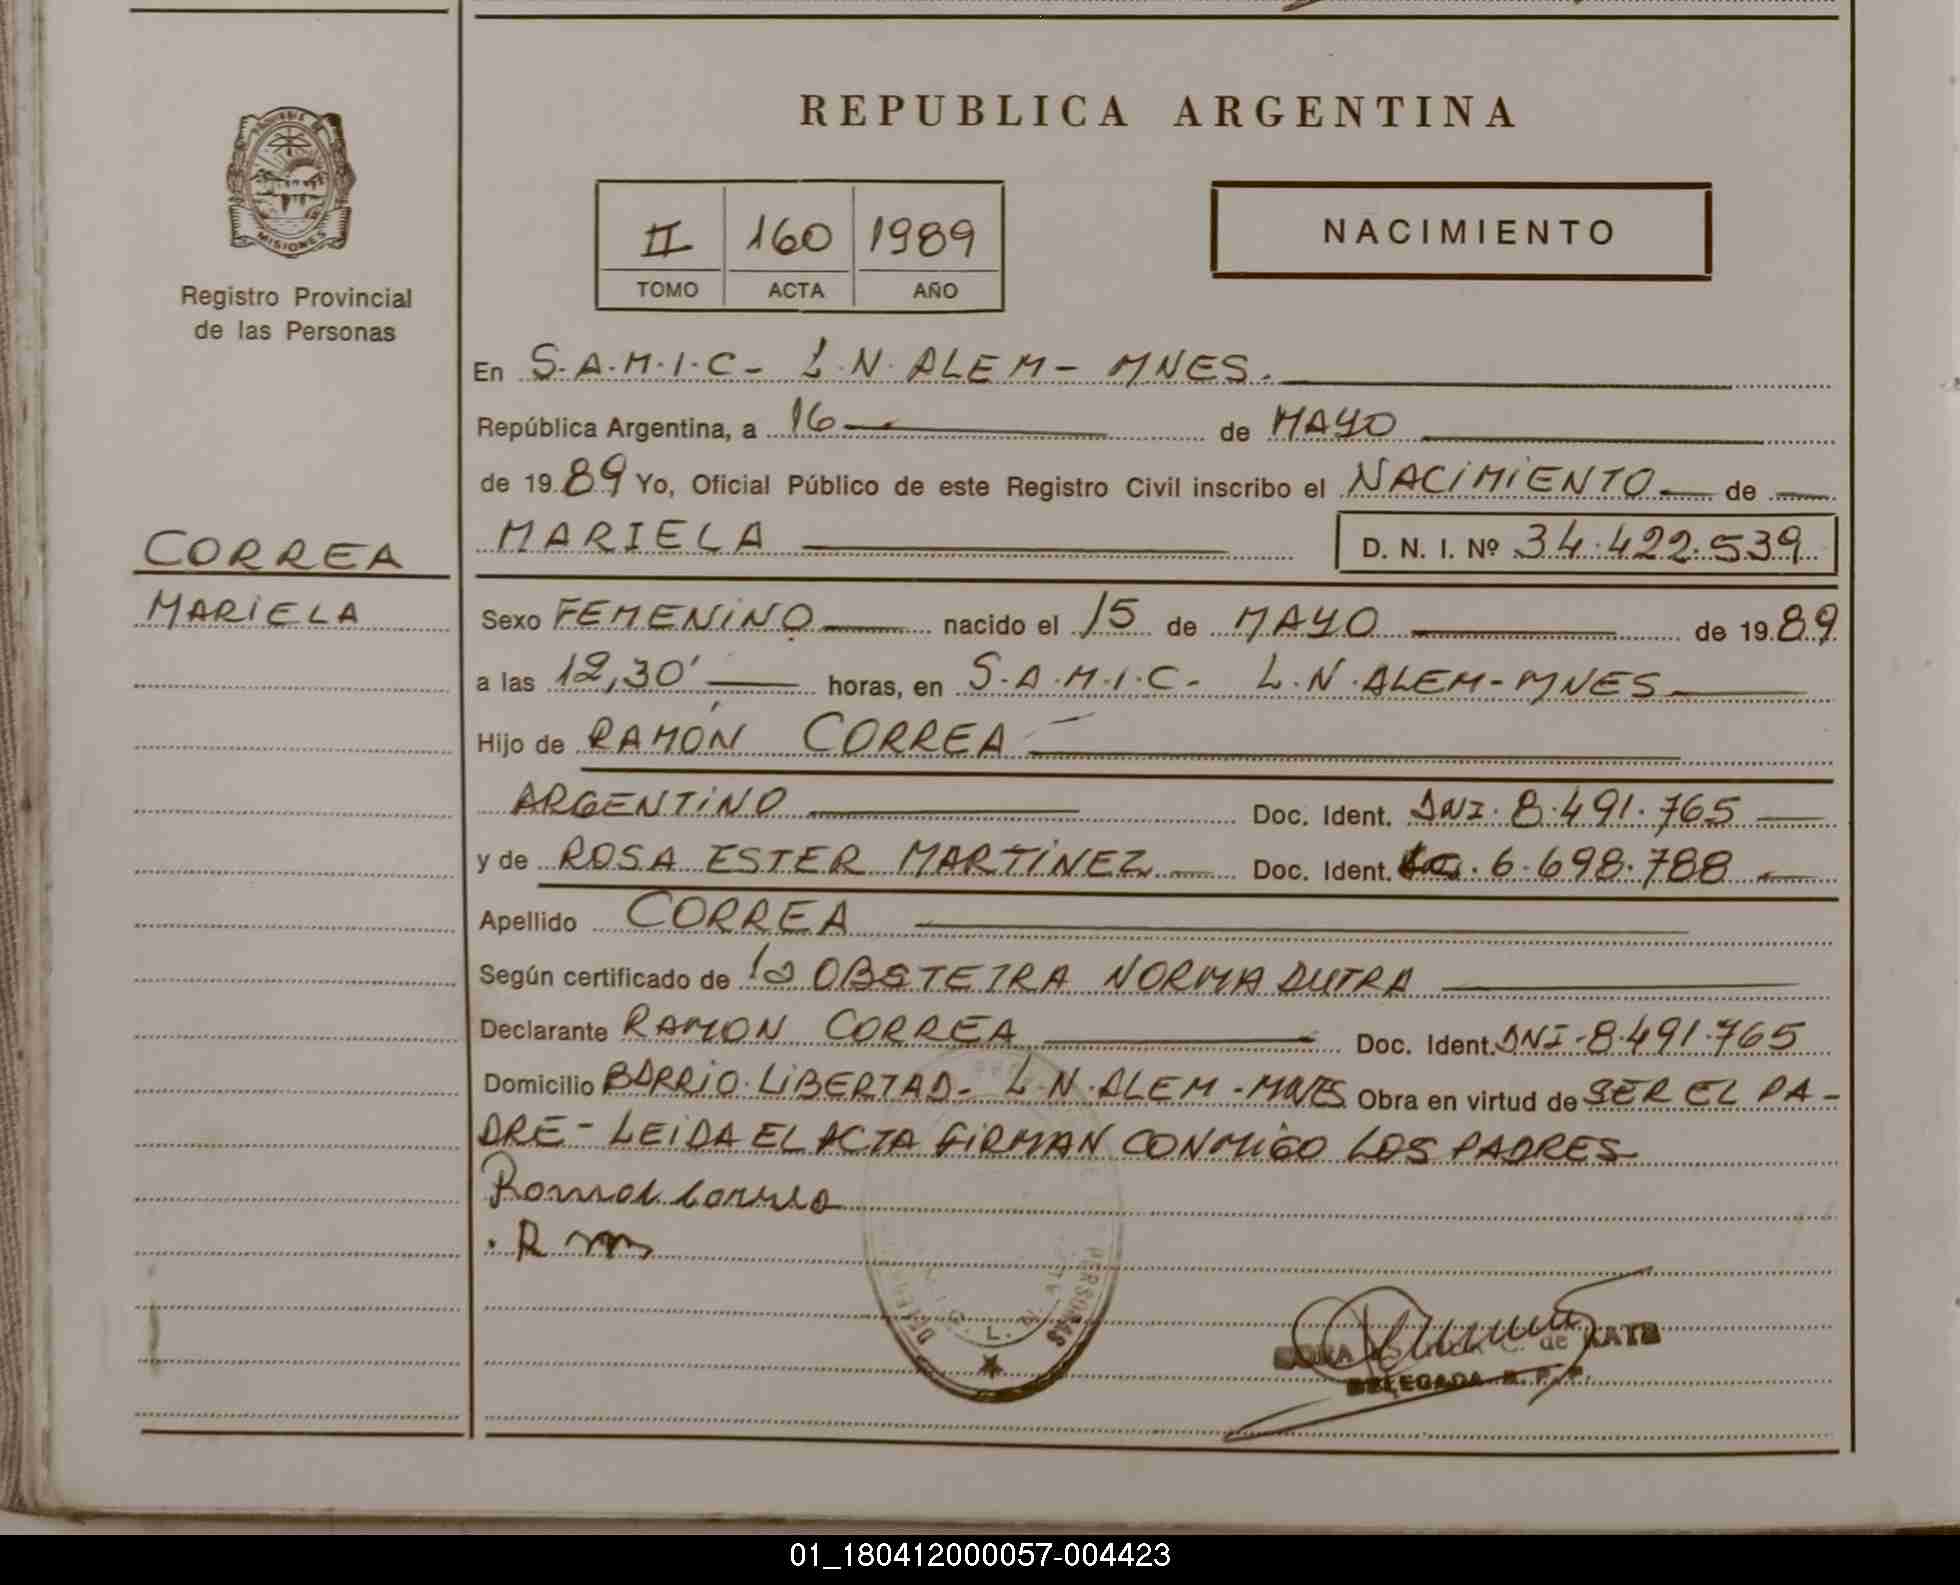 REPUBLICA ARGENTINA
PROVINCIA DE
MISIONES
Registro Provincial
de las Personas
II 160 1989
TOMO ACTA AÑO
NACIMIENTO
En S.A.M.I.C- L.N.ALEM- MNES.
República Argentina, a 16 de MAYO
de 1989 Yo, Oficial Público de este Registro Civil inscribo el NACIMIENTO de
CORREA
MARIELA
MARIELA D. N. I. Nº 34.422.539
Sexo FEMENINO nacido el 15 de MAYO de 1989
a las 12,30' horas, en S.A.M.I.C- L.N.ALEM-MNES
Hijo de RAMÓN CORREA
ARGENTINO Doc. Ident. DNI. 8.491.765
y de ROSA ESTER MARTÍNEZ Doc. Ident. 6.698.788
Apellido CORREA
Según certificado de la OBSTETRA NORMA DUTRA
Declarante RAMON CORREA Doc. Ident. DNI-8.491.765
Domicilio BARRIO LIBERTAD- L.N.ALEM-MNES Obra en virtud de SER EL PA-
DRE- LEIDA EL ACTA FIRMAN CONMIGO LOS PADRES
Ramon Correa
R m
PERSONAS
L. N.
de KATZ
DELEGADA R. P. P.
01_180412000057-004423